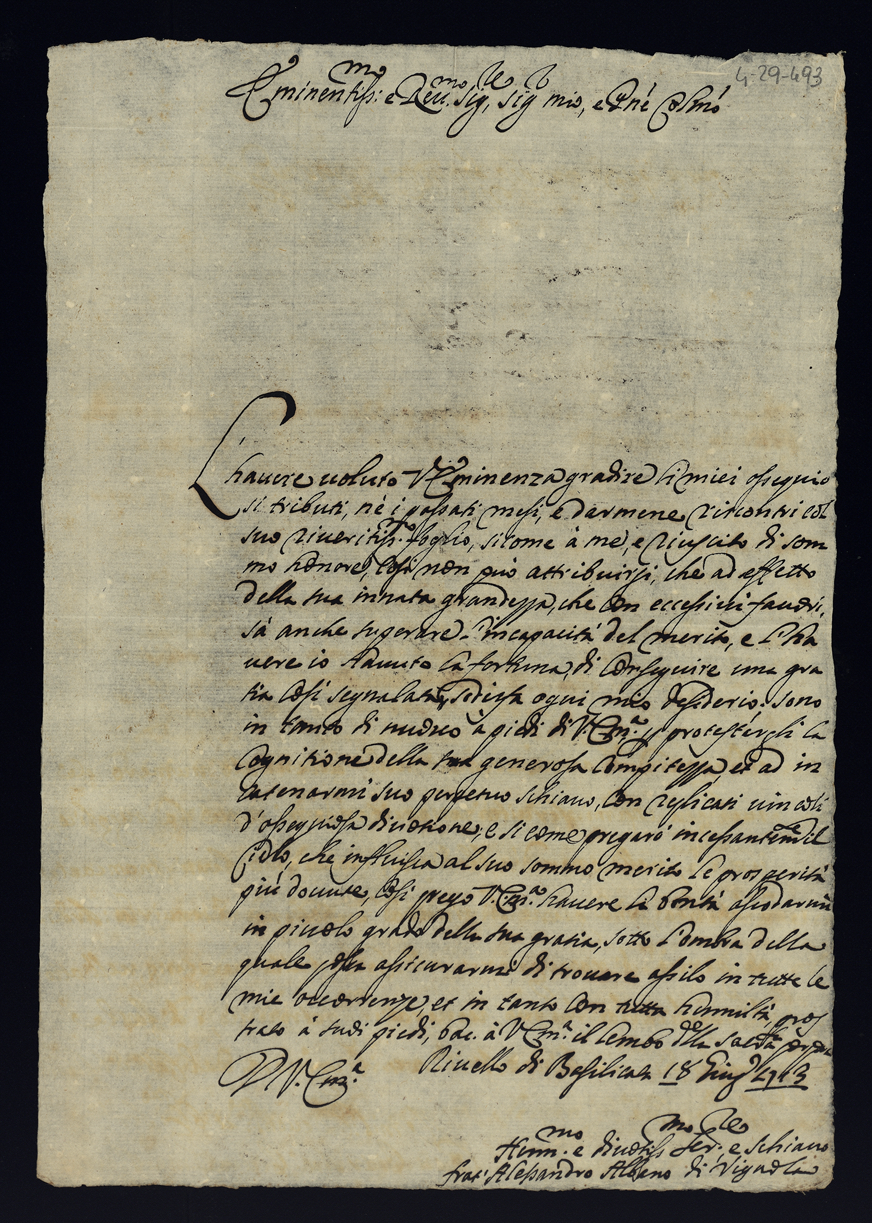 4-29-493
Eminentiss:mo e Reu:mo Sig.re, Sig.r mio, e Pñe Colmo
L'hauere uoluto V. Eminenza gradire li miei ossequio
si tributi, nè i passati mesi, e darmene riscontri col
suo riueritiss:mo foglio, si come à me, e riuscito di som
mo honore, Così non può attribuirsi, che ad effetto
della sua innata grandezza, che con eccessiui fauori,
sà anche superare l'incapacità del merito, e l'ha
uere io hauuto la fortuna, di conseguire una gra
tia Così segnalata, ogni mio desiderio: sono
in tanto di nuouo a piedi di V. Em.a p protestargli la
Cognitione della sua generosa Compitezza, et ad in
catenarmi suo perpetuo schiauo, con replicati uincoli
d'ossequiosa diuotione, e si come pregarò incessantem.te il
Cielo, che influisca al suo sommo merito le prosperità
più douute, Così prego V. Em.a hauere la bontà
in piccolo grado della sua gratia, sotto l'ombra della
quale possa assicurarmi di trouare assilo in tutte le
mie occorrenze, et in tanto con tutta humiltà, pros
trato à suoi piedi, bac. à V. Em.a il lembo della sacra
D V. Em.a Riuello di Basilicata 18 Giug.o
Humm.mo e diuotiss.mo Ser.re e schiauo
frat' Alessandro Albano di Vignola